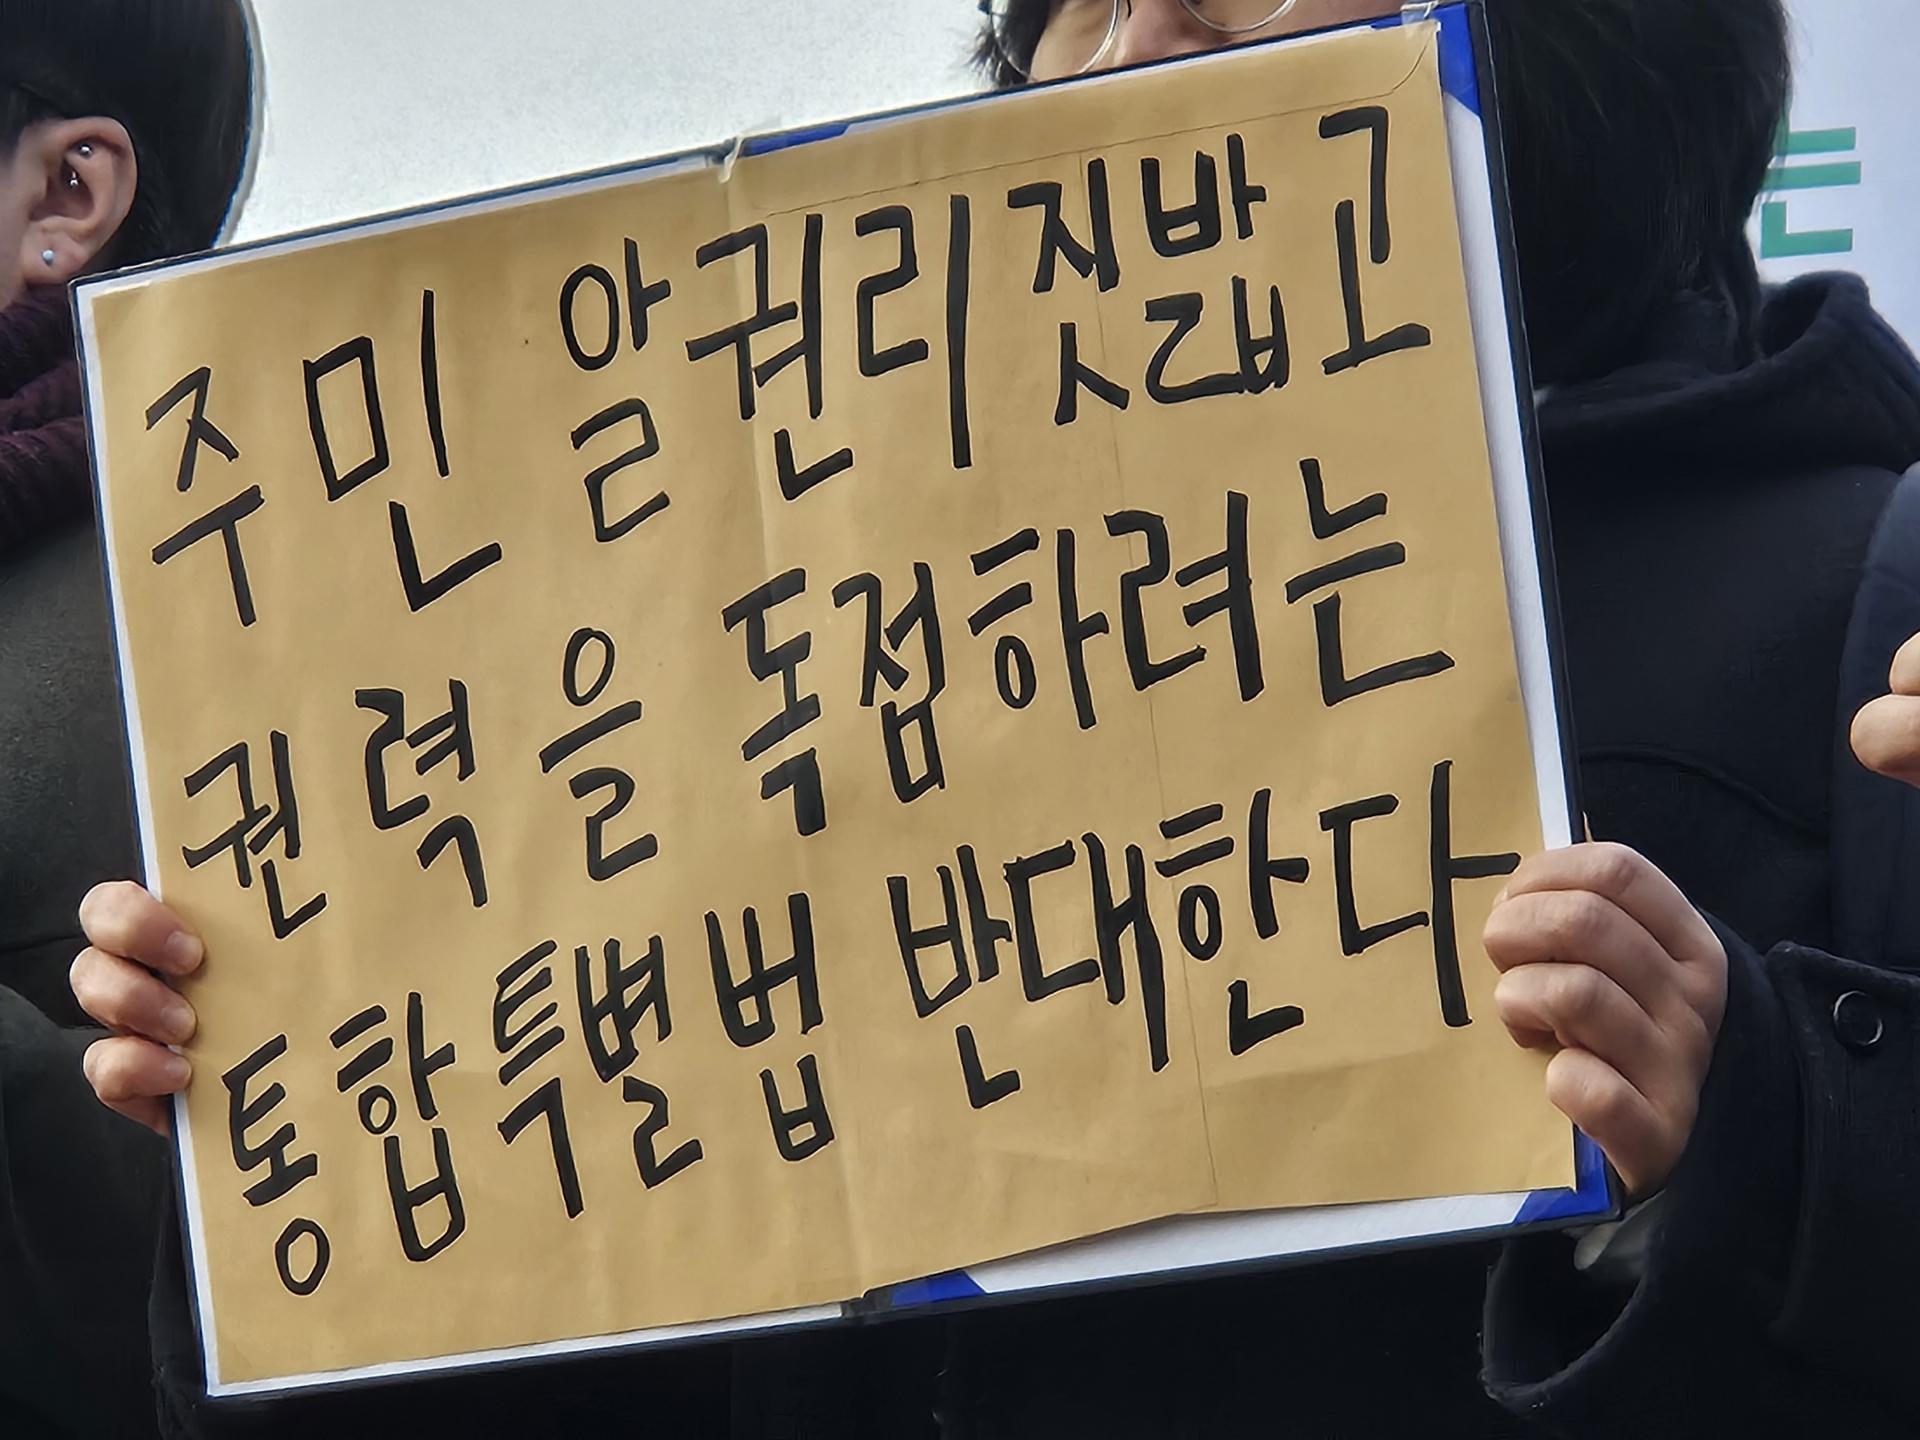 주민 알권리 짓밟고
권력을 독점하려는
통합특별법 반대한다
는